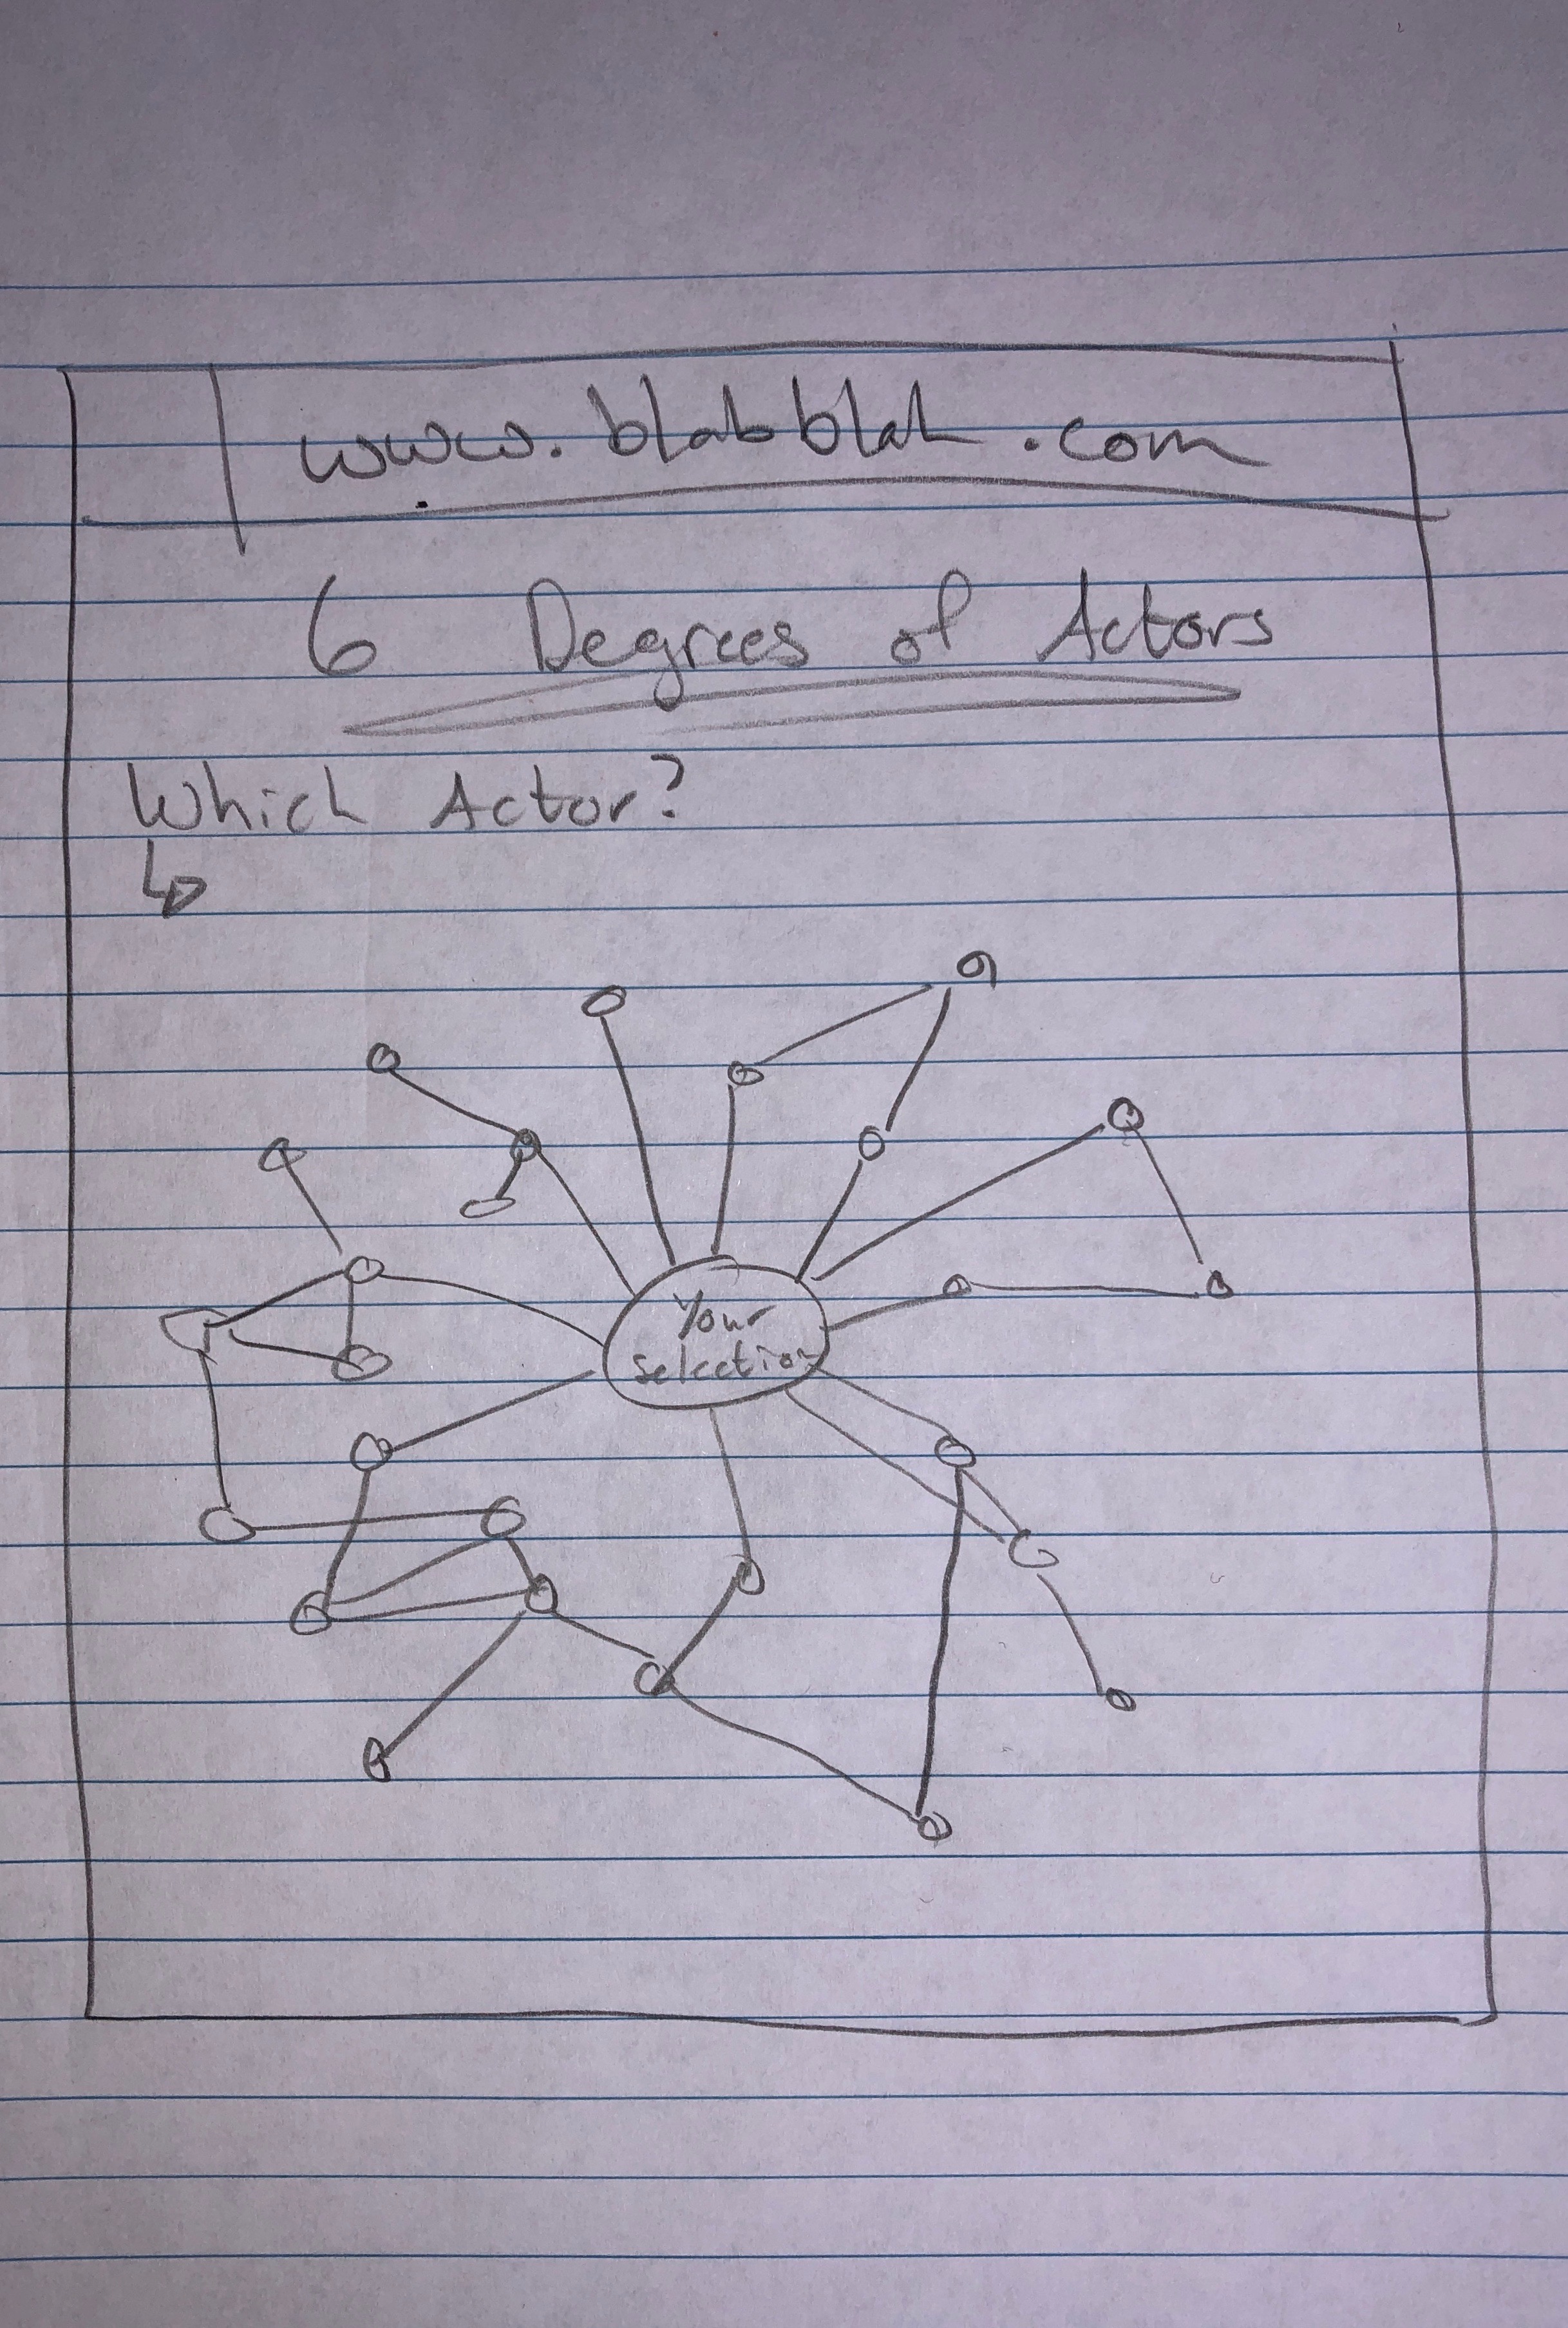 www.blahblah.com
6 Degrees of Actors
Which Actor?
Your
selection